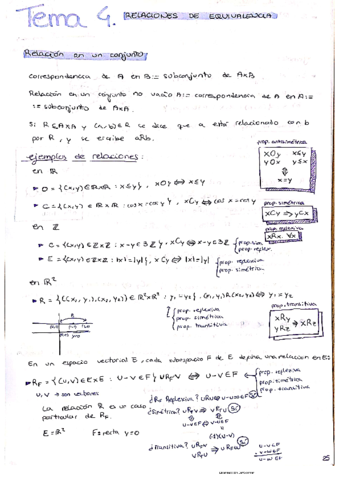 Tema 4. RELACIONES DE EQUIVALENCIA
Relación en un conjunto
correspondencia de A en B := subconjunto de A×B
Relación en un conjunto no vacío A := correspondencia de A en A :=
:= subconjunto de A×A.
Si R ⊆ A×A y (a,b) ∈ R se dice que a está relacionado con b
por R, y se escribe aRb.
prop. antisimétrica
xOy x≤y
yOx y≤x
⇕
x=y
ejemplos de relaciones:
en ℝ
O = {(x,y) ∈ ℝ×ℝ : x≤y}, xOy ⇔ x≤y
prop. simétrica
xCy ⇒ yCx
C = {(x,y) ∈ ℝ×ℝ : cosx = cosy}, xCy ⇔ cosx = cosy
prop. reflexiva
xRx, ∀x
en ℤ
C = {(x,y) ∈ ℤ×ℤ : x-y ∈ 3ℤ}, xCy ⇔ x-y ∈ 3ℤ
E = {(x,y) ∈ ℤ×ℤ : |x|=|y|}, xEy ⇔ |x|=|y|
prop. reflexiva
prop. simétrica
en ℝ²
R = {((x₁,y₁),(x₂,y₂)) ∈ ℝ²×ℝ² : y₁=y₂}, (x₁,y₁)R(x₂,y₂) ⇔ y₁=y₂
prop. reflexiva
prop. simétrica
prop. transitiva
prop. transitiva
xRy
yRz ⇒ xRz
En un espacio vectorial E, cada subespacio F de E define una relación en E:
R_F = {(u,v) ∈ E×E : u-v ∈ F} uR_Fv ⇔ u-v ∈ F
prop. reflexiva
prop. simétrica
prop. transitiva
u, v → son vectores
¿R_F Reflexiva? uRu ⇔ u-u=0 ∈ F
La relación R es un caso
particular de R_F.
¿Simétrica? uR_Fv ⇒ vR_Fu
u-v ∈ F ⇔ v-u ∈ F
E = ℝ² F: recta y=0
¿Transitiva? uR_Fv
u-v ∈ F
25